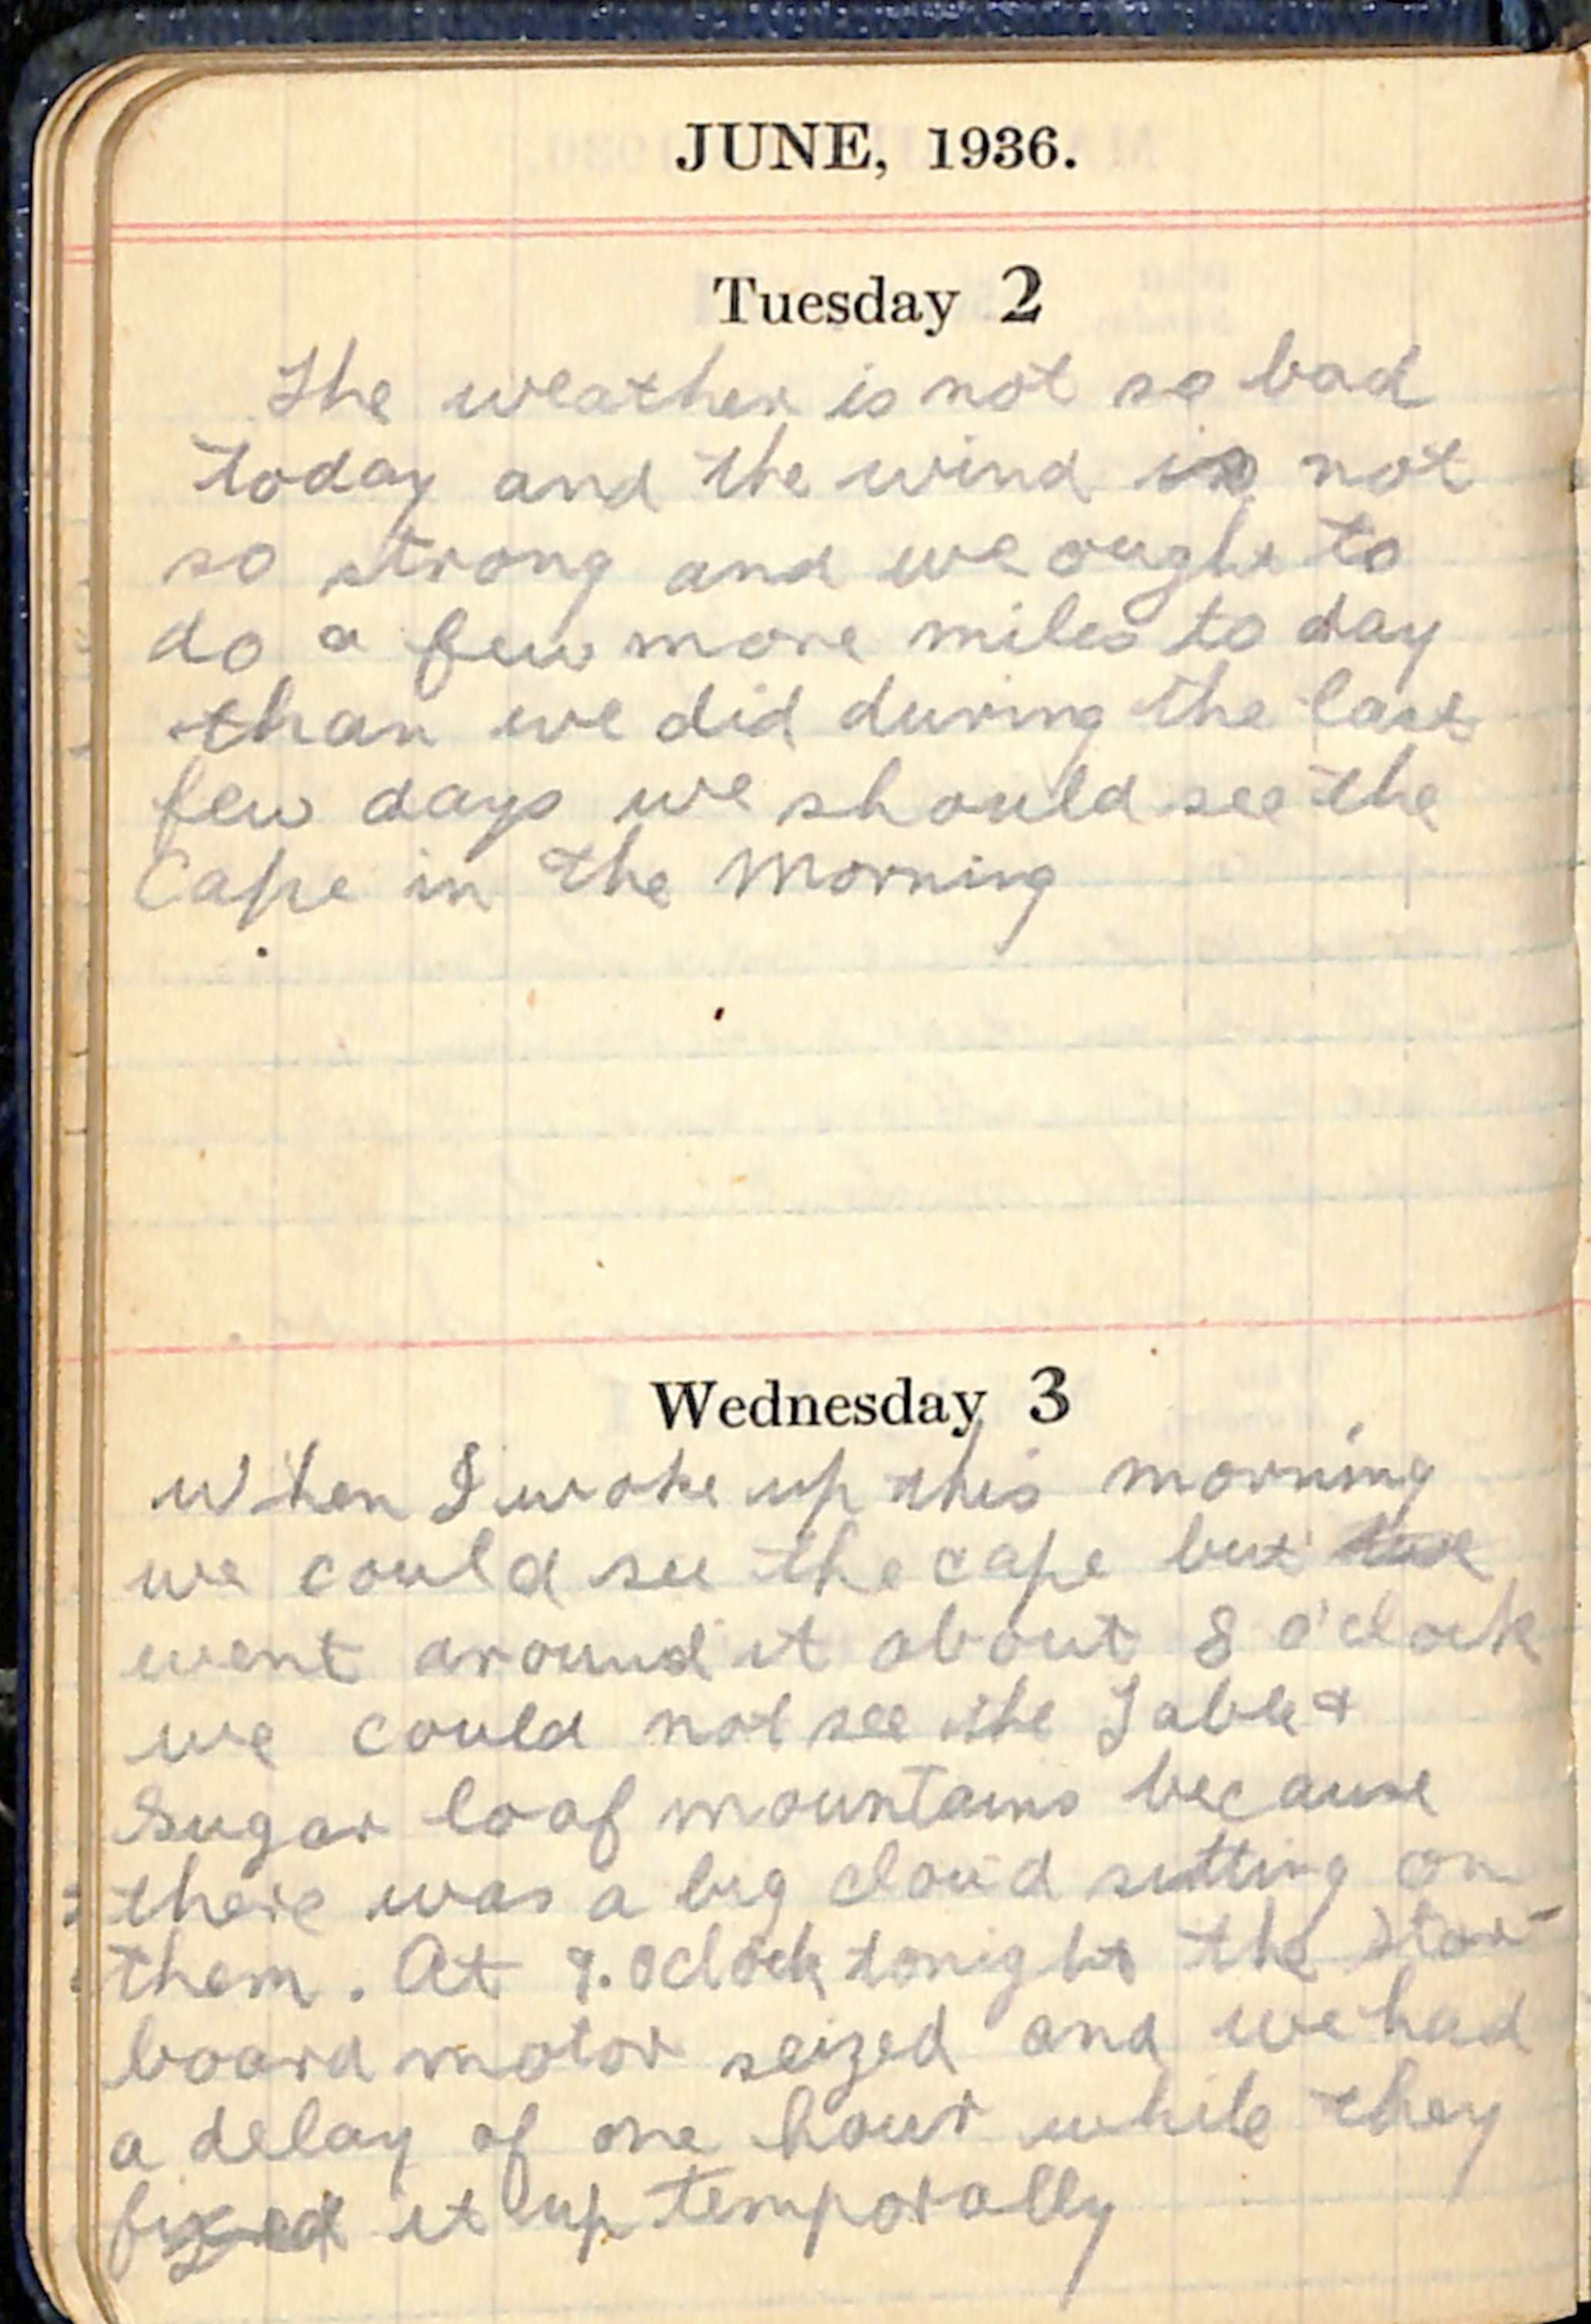 JUNE, 1936.
Tuesday 2
The weather is not so bad
today and the wind is not
so strong and we ought to
do a few more miles to day
than we did during the last
few days we should see the
Cape in the Morning
Wednesday 3
When I woke up this morning
we could see the cape but we
went around it about 8 o'clock
we could not see the Table &
Sugar loaf mountains because
there was a big cloud sitting on
them. At 9. oclock tonight the star-
board motor seized and we had
a delay of one hour while they
fixed it up temporally